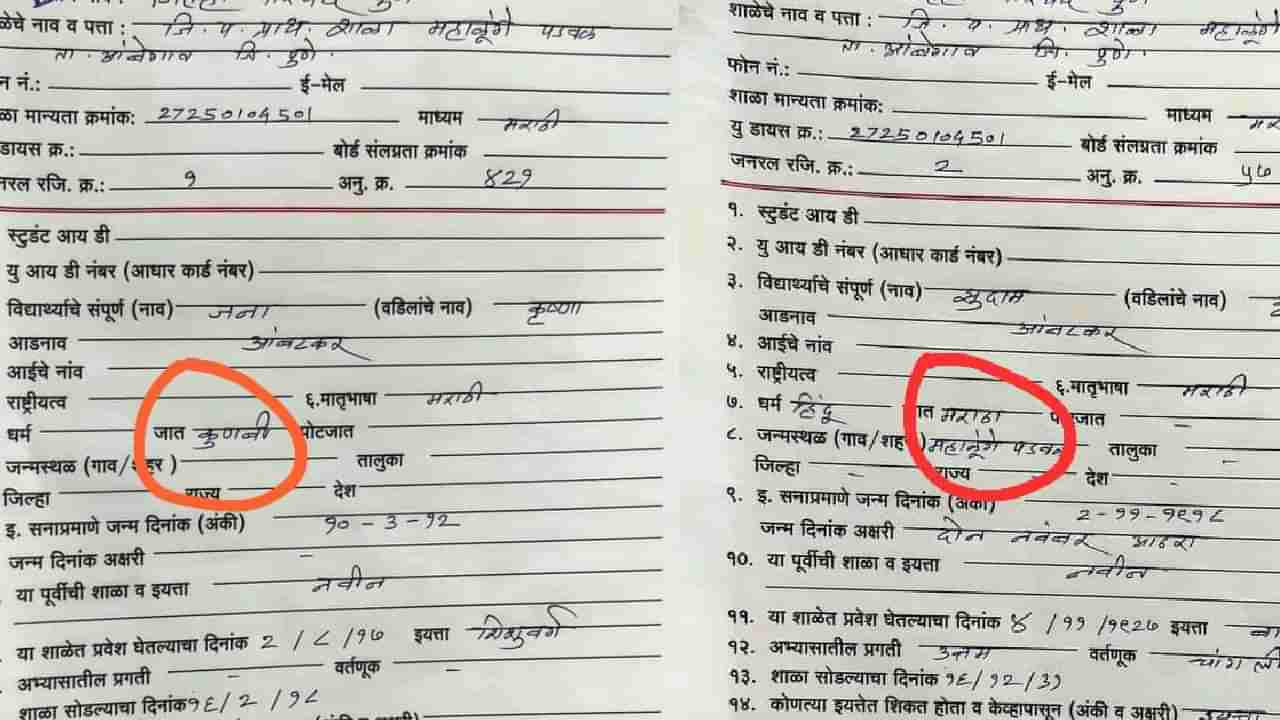 ळेचे नाव व पत्ता : जि. प. प्राथ. शाळा महाळूंगे पडवळ
ता. आंबेगाव जि. पुणे.
न नं.: ई-मेल
ळा मान्यता क्रमांक: 27250104501 माध्यम मराठी
डायस क्र.: बोर्ड संलग्नता क्रमांक
नरल रजि. क्र.: १ अनु. क्र. ४२१
स्टुडंट आय डी
यु आय डी नंबर (आधार कार्ड नंबर)
विद्यार्थ्याचे संपूर्ण (नाव) जना (वडिलांचे नाव) कृष्णा
आडनाव आंबटकर
आईचे नांव
राष्ट्रीयत्व ६.मातृभाषा मराठी
धर्म जात कुणबी पोटजात
जन्मस्थळ (गाव/शहर ) तालुका
जिल्हा राज्य देश
इ. सनाप्रमाणे जन्म दिनांक (अंकी) १० - ३ - १२
जन्म दिनांक अक्षरी -
या पूर्वीची शाळा व इयत्ता नवीन
या शाळेत प्रवेश घेतल्याचा दिनांक २ / ८ / १७ इयत्ता शिशुवर्ग
अभ्यासातील प्रगती - वर्तणूक -
शाळा सोडल्याचा दिनांक १६ / २ / १८
शाळेचे नाव व पत्ता : जि. प. प्राथ. शाळा महाळूंगे
ता. आंबेगाव जि. पुणे.
फोन नं.: ई-मेल
शाळा मान्यता क्रमांक: माध्यम
यु डायस क्र.: 27250104501 बोर्ड संलग्नता क्रमांक
जनरल रजि. क्र.: २ अनु. क्र. ५७
१. स्टुडंट आय डी
२. यु आय डी नंबर (आधार कार्ड नंबर)
३. विद्यार्थ्याचे संपूर्ण (नाव) सुदाम (वडिलांचे नाव)
आडनाव आंबटकर
४. आईचे नांव
५. राष्ट्रीयत्व ६.मातृभाषा मराठी
७. धर्म हिंदू जात मराठा पोटजात -
८. जन्मस्थळ (गाव/शहर ) महाळूंगे पडवळ तालुका -
जिल्हा - राज्य देश -
९. इ. सनाप्रमाणे जन्म दिनांक (अंकी) २ - ११ - १९१८
जन्म दिनांक अक्षरी दोन नवंबर अठरा
१०. या पूर्वीची शाळा व इयत्ता नवीन
११. या शाळेत प्रवेश घेतल्याचा दिनांक ४ / ११ / १९२७ इयत्ता
१२. अभ्यासातील प्रगती उत्तम वर्तणूक चांगली
१३. शाळा सोडल्याचा दिनांक १६ / १२ / ३१
१४. कोणत्या इयत्तेत शिकत होता व केव्हापासून (अंकी व अक्षरी)